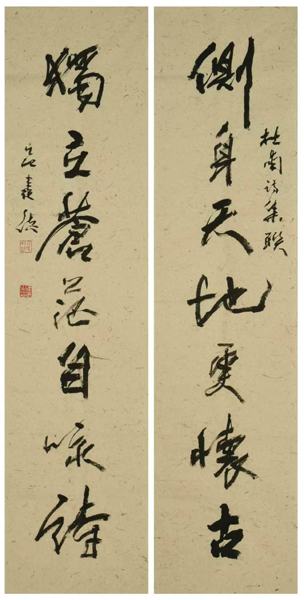 杜甫詩集聯
側身天地更懷古
獨立蒼茫自咏詩